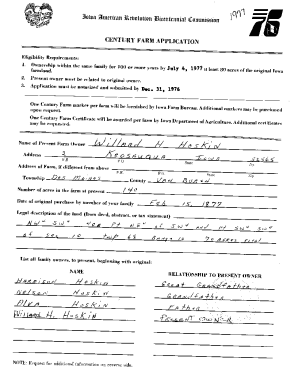 1977
Iowa American Revolution Bicentennial Commission
76
CENTURY FARM APPLICATION
Eligibility Requirements:
1. Ownership within the same family for 100 or more years by July 4, 1977 if least 80 acres of the original Iowa
farmland.
2. Present owner must be related to original owner.
3. Application must be notarized and submitted by Dec. 31, 1976
One Century Farm marker per farm will be furnished by Iowa Farm Bureau. Additional markers may be purchased
upon request.
One Century Farm Certificate will be awarded per farm by Iowa Department of Agriculture. Additional certificates
may be requested.
Name of Present Farm Owner Willard H. Hoskin
Address 2 Keosauqua Iowa
Address of Farm, if different from above
Township Des Moines County Van Buren
Number of acres in the farm at present 140
Date of original purchase by member of your family Feb 15, 1877
Legal description of the land (from deed, abstract, or tax statement)
NW" SW" SW" SW" SW"
of Sec 10 Twp 68
List all family owners, to present, beginning with original:
NAME RELATIONSHIP TO PRESENT OWNER
Harrison Hoskin Great Grandfather
Nelson Hoskin Grandfather
Alva Hoskin Father
Willard H. Hoskin Present Owner
NOTE: Request for additional information on reverse side.